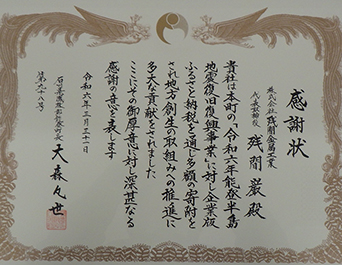 感謝状
株式会社残間金属工業
代表取締役
残間巌殿
貴社は本町の「令和六年能登半島
地震復旧復興事業」に対し企業版
ふるさと納税を通じ多額の寄附を
され地方創生の取組みの推進に
多大な貢献をされました
ここにその御厚志に対し深甚なる
感謝の意を表します
令和六年三月三十一日
石川県鳳珠郡能登町長
大森凡世